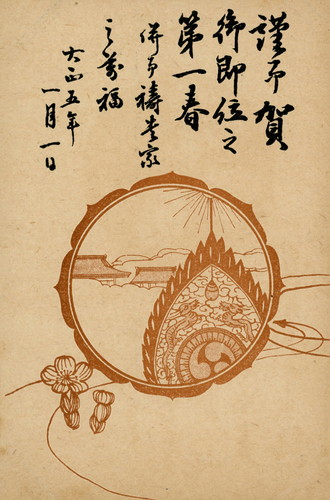 謹而賀
御即位之
第一春
併而祷貴家
之萬福
大正五年
一月一日